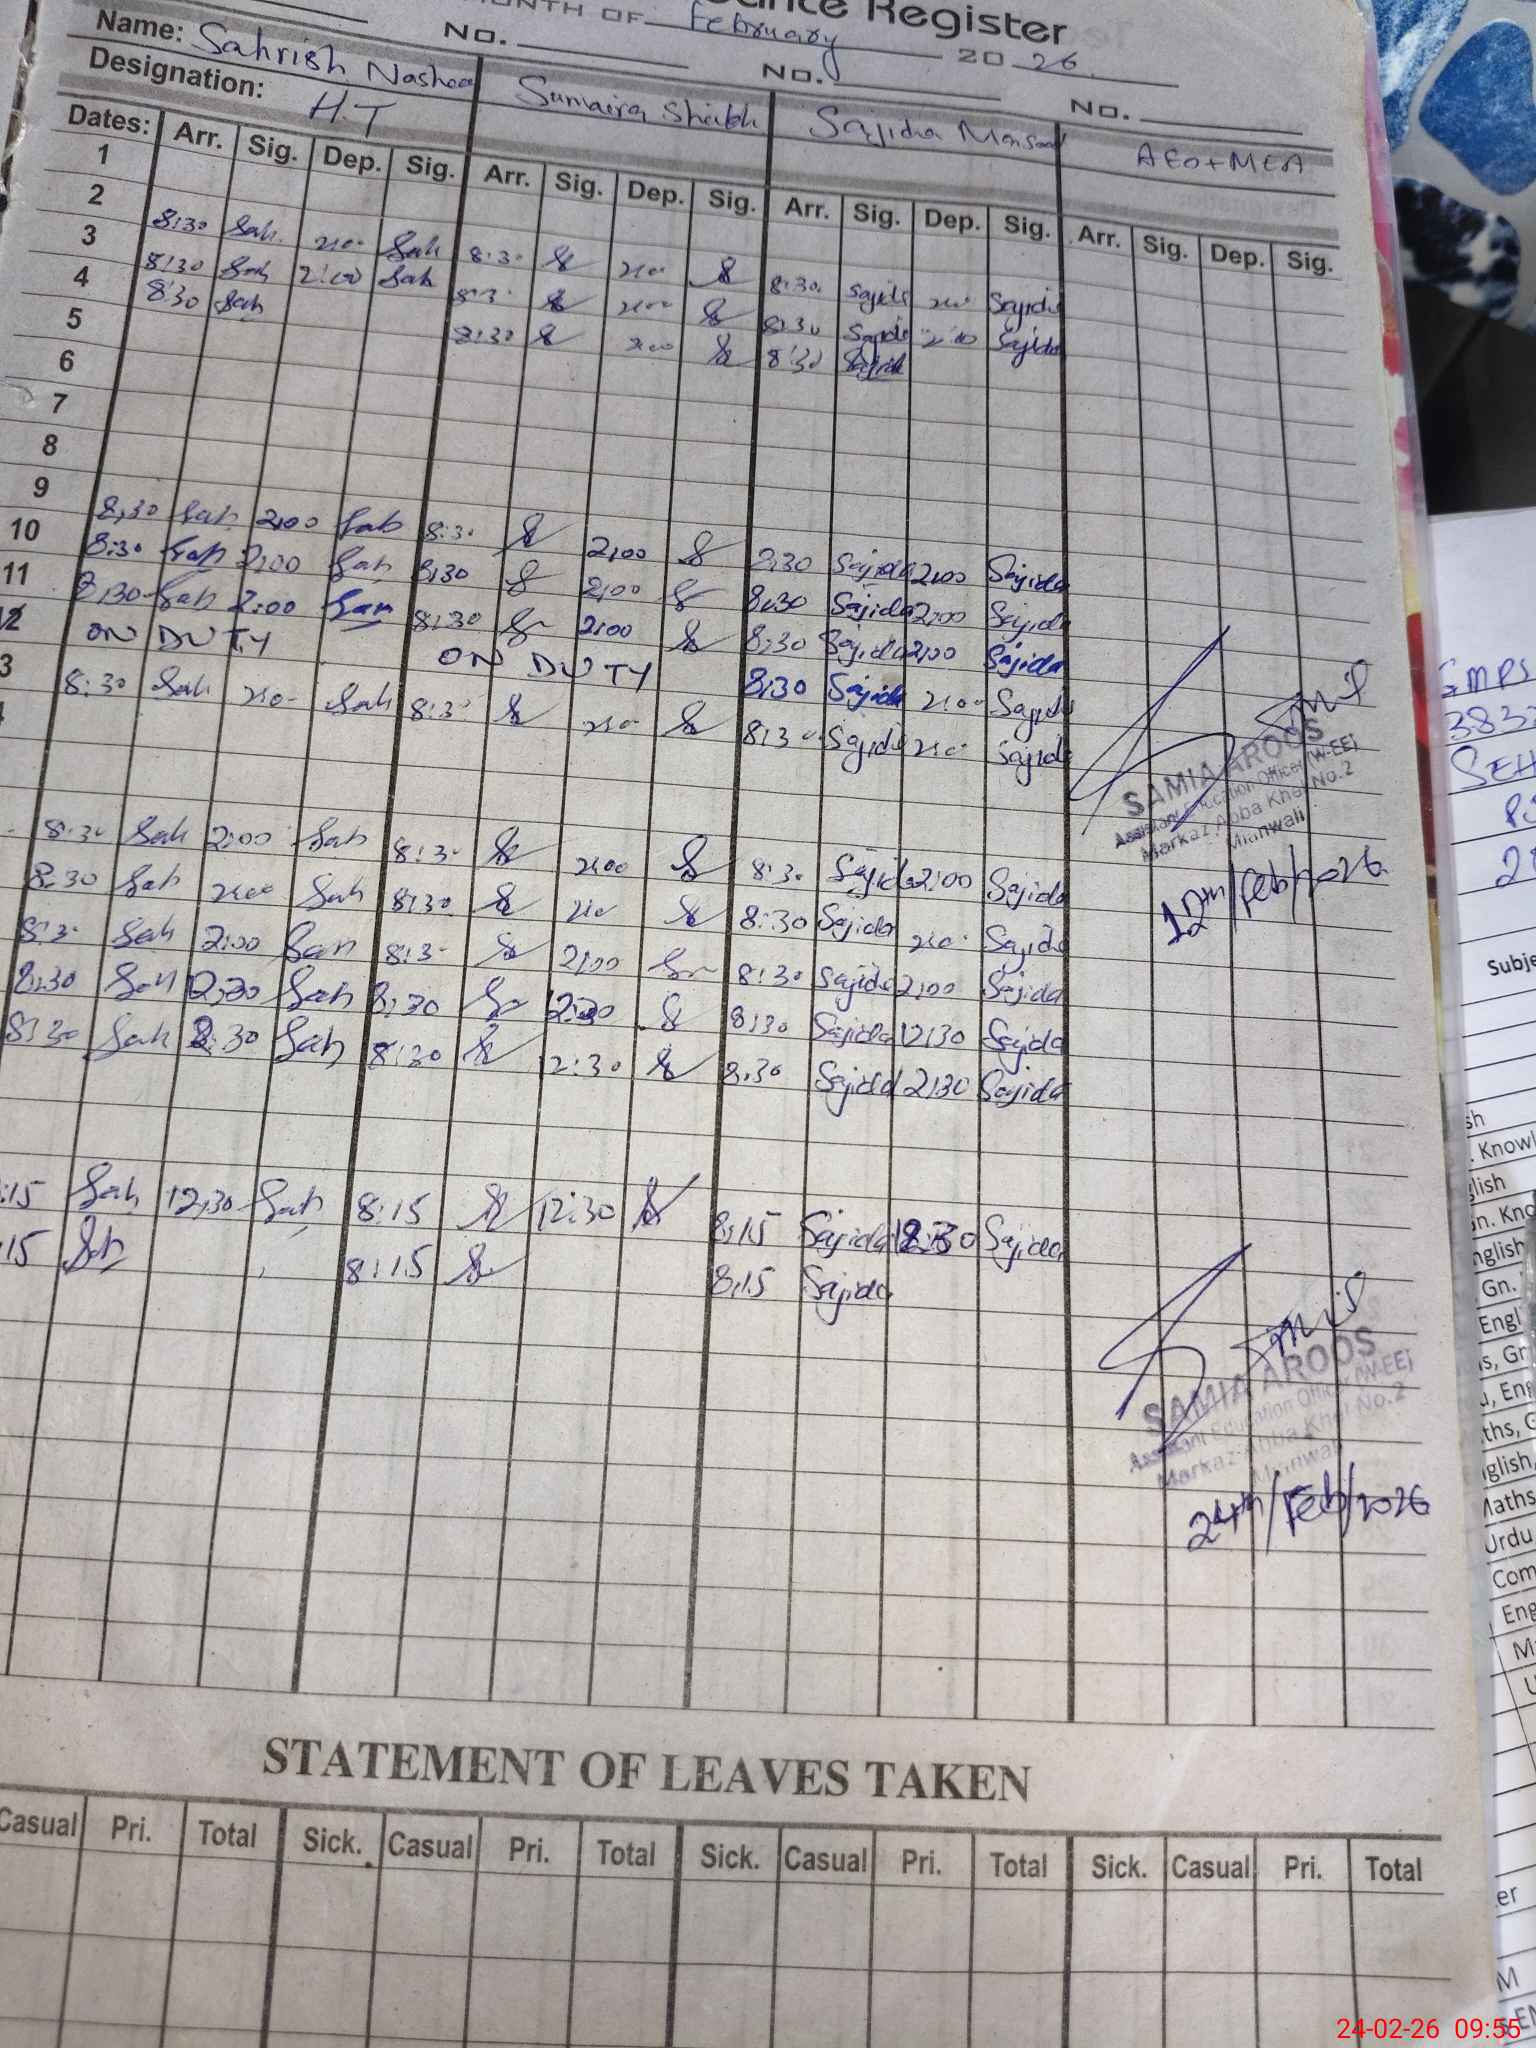 ance Register
MONTH OF February 20 26
Name: Sahrish No. No. No.
Designation: H.T Sumaira Sheikh Sajida AEO+MEA
Dates: Arr. Sig. Dep. Sig. Arr. Sig. Dep. Sig. Arr. Sig. Dep. Sig. Arr. Sig. Dep. Sig.
1
2
3 8:30 Sah 2:00 Sah 8:30 2:00 8:30 Sajida 2:00 Sajida
4 8:30 Sah 2:00 Sah 8:30 2:00 8:30 Sajida 2:00 Sajida
5 8:30 Sah 8:30 2:00 8:30 Sajida
6
7
8
9 8:30 Sah 2:00 Sah 8:30 2:00 8:30 Sajida 2:00 Sajida
10 8:30 Sah 2:00 Sah 8:30 2:00 8:30 Sajida 2:00 Sajida
11 8:30 Sah 2:00 Sah 8:30 2:00 8:30 Sajida 2:00 Sajida
12 ON DUTY ON DUTY 8:30 Sajida 2:00 Sajida
3 8:30 Sah 2:00 Sah 8:30 2:00 8:30 Sajida 2:00 Sajida
SAMIA AROOS
Assistant Education Officer (W-EE)
Markaz Abba Khel No.2
Mianwali
12th/Feb/2026
8:30 Sah 2:00 Sah 8:30 2:00 8:30 Sajida 2:00 Sajida
8:30 Sah 2:00 Sah 8:30 2:00 8:30 Sajida 2:00 Sajida
8:30 Sah 2:00 Sah 8:30 2:00 8:30 Sajida 2:00 Sajida
8:30 Sah 12:30 Sah 8:30 12:30 8:30 Sajida 12:30 Sajida
8:30 Sah 12:30 Sah 8:30 12:30 8:30 Sajida 12:30 Sajida
:15 Sah 12:30 Sah 8:15 12:30 8:15 Sajida 12:30 Sajida
:15 Sah 8:15 8:15 Sajida
SAMIA AROOS
Assistant Education Officer (W-EE)
Markaz Abba Khel No.2
Mianwali
24th/Feb/2026
STATEMENT OF LEAVES TAKEN
Casual Pri. Total Sick. Casual Pri. Total Sick. Casual Pri. Total Sick. Casual Pri. Total
GMPS
Subje
sh
. Knowl
glish
Gn. Kno
nglish
Gn.
Engl
s, Gr
, Eng
ths, G
glish,
Maths
Urdu
Com
Eng
er
24-02-26 09:55